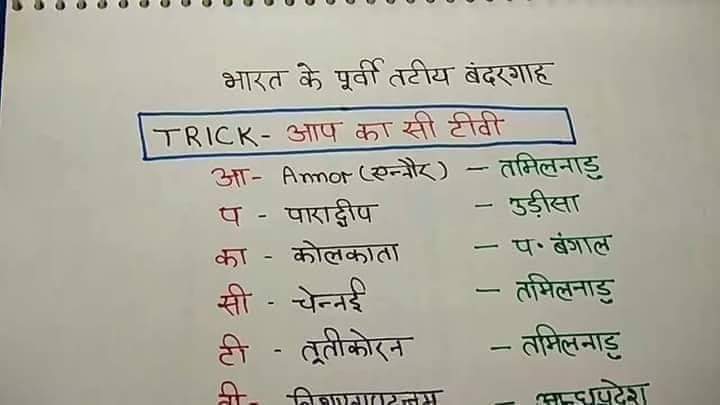 भारत के पूर्वी तटीय बंदरगाह
TRICK- आप का सी टीवी
आ- Annor (एन्नौर) - तमिलनाडु
प - पाराद्वीप - उड़ीसा
का - कोलकाता - प. बंगाल
सी - चेन्नई - तमिलनाडु
टी - तूतीकोरन - तमिलनाडु
वी- विशाखापट्नम - आन्ध्रप्रदेश